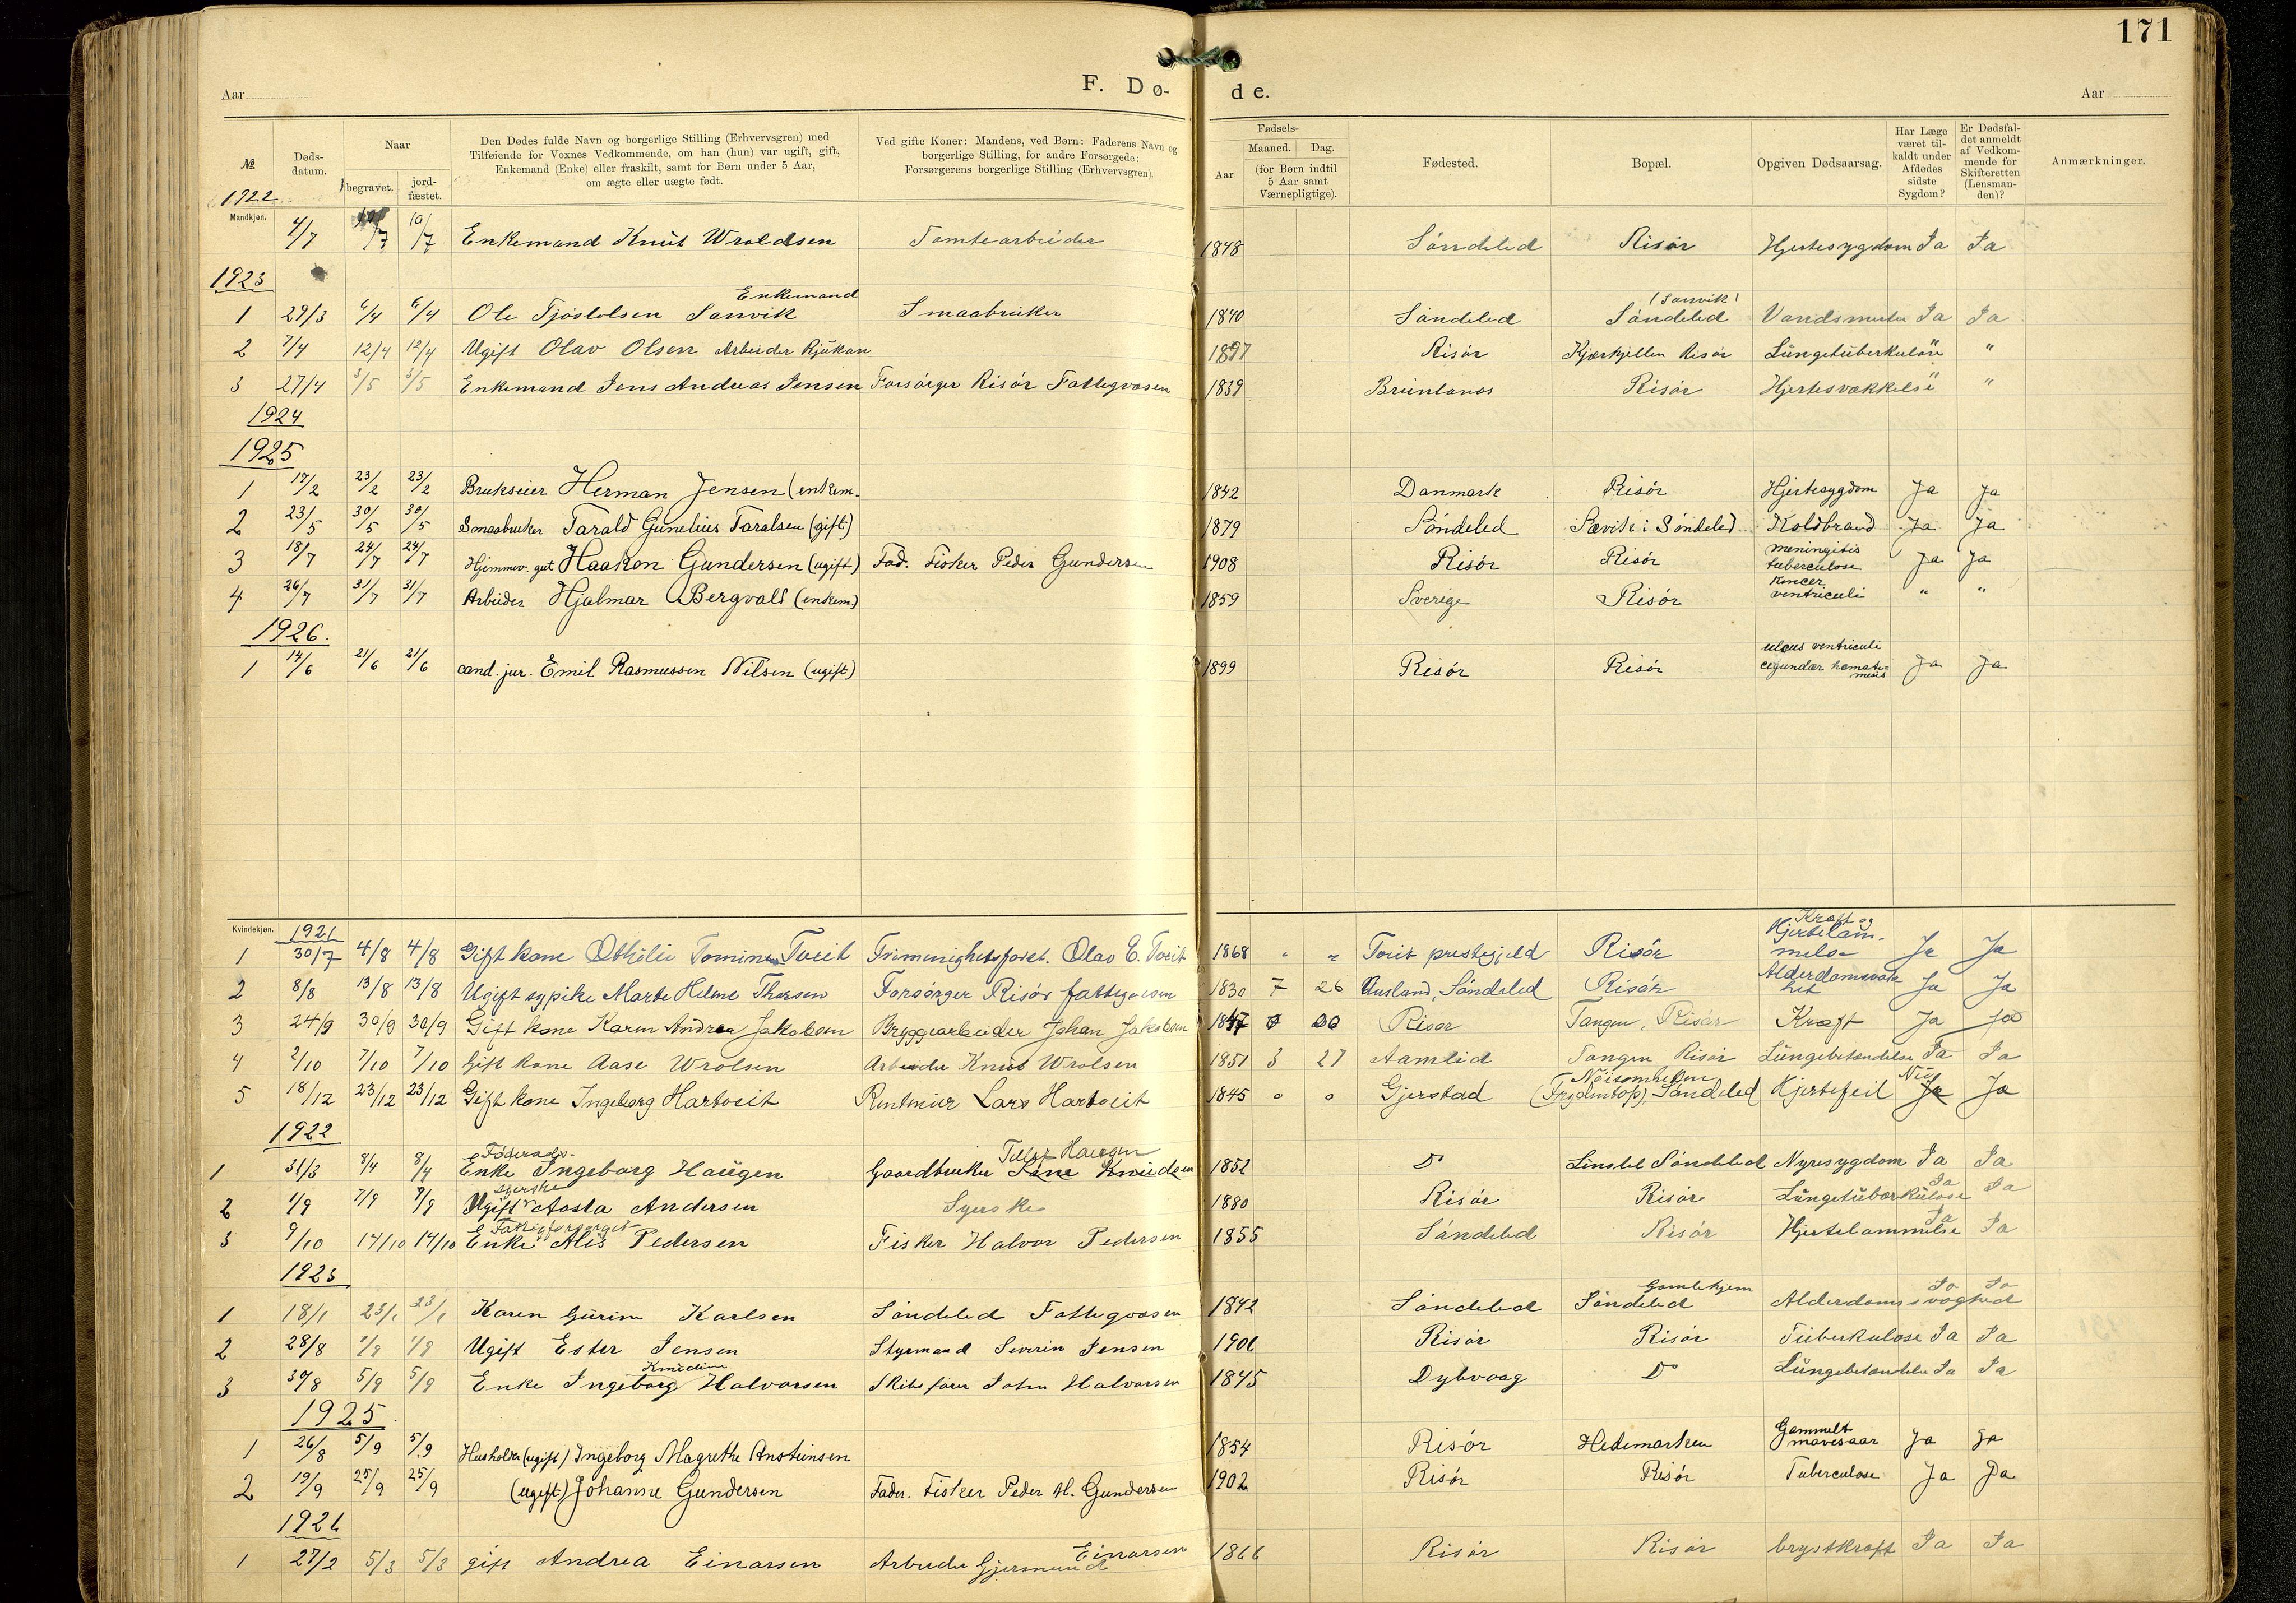 171
Aar
F. Dø-
de.
Aar
№
Døds-
datum.
Naar
begravet.
jord-
fæstet.
Den Dødes fulde Navn og borgerlige Stilling (Erhvervsgren) med
Tilføiende for Voxnes Vedkommende, om han (hun) var ugift, gift,
Enkemand (Enke) eller fraskilt, samt for Børn under 5 Aar,
om ægte eller uægte født.
Ved gifte Koner: Mandens, ved Børn: Faderens Navn og
borgerlige Stilling, for andre Forsørgede:
Forsørgerens borgerlige Stilling (Erhvervsgren).
Fødsels-
Aar
Maaned.
Dag.
(for Børn indtil
5 Aar samt
Værnepligtige).
Fødested.
Bopæl.
Opgiven Dødsaarsag.
Har Læge
været til-
kaldt under
Afdødes
sidste
Sygdom?
Er Dødsfal-
det anmeldt
af Vedkom-
mende for
Skifteretten
(Lensman-
den)?
Anmærkninger.
1922
Mandkjøn.
4/7 10/7 10/7 Enkemand Knut Wroldsen Tomtearbeider 1848 Søndeled Risør Hjertesygdom Ja Ja
1923
1 29/3 6/4 6/4 Ole Tjøstolsen Sanvik Enkemand Smaabruker 1840 Søndeled (Sanvik) Søndeled Ja Ja
2 7/4 12/4 12/4 Ugift Olav Olsen Arbeider Rjukan 1897 Risør Risør Lungetuberkulose " "
3 27/4 3/5 3/5 Enkemand Jens Andreas Jensen Forsørger Risør Fattigvæsen 1839 Brunlanæs Risør Hjertesvækkelse " "
1924
1925
1 17/2 23/2 23/2 Brukseier Herman Jensen (enkem. 1842 Danmark Risør Hjertesygdom Ja Ja
2 23/5 30/5 30/5 Smaabruker Tarald Gunelius Taralsen (gift) 1879 Søndeled Sævik i Søndeled Koldbrand Ja Ja
3 18/7 24/7 24/7 Hjemmev. gut Haakon Gundersen (ugift) Fad. Fisker Peder Gundersen 1908 Risør Risør meningitis tuberculose Ja Ja
4 26/7 31/7 31/7 Arbeider Hjalmar Bergvald (enkem) 1859 Sverige Risør Kancer ventriculi " "
1926.
1 14/6 21/6 21/6 cand. jur. Emil Rasmussen Nilsen (ugift) 1899 Risør Risør ulcus ventriculi hæmate- mesis Ja Ja
Kvindekjøn.
1921
1 30/7 4/8 4/8 Gift kone Othilie Tomine Tveit Frimenighetsforst. Olav E. Tveit 1868 " " Tveit prestegjeld Risør Kræft og Hjertelam- melse Ja Ja
2 8/8 13/8 13/8 Ugift sypike Marte Helene Thorsen Forsørger Risør fattigvæsen 1830 7 26 Ausland, Søndeled Risør Alderdomsvak- het Ja Ja
3 24/9 30/9 30/9 Gift kone Karen Andrea Jakobsen Bryggearbeider Johan Jakobsen 1847 Risør Tangen, Risør Kræft Ja Ja
4 2/10 7/10 7/10 Gift kone Aase Wrolsen Arbeider Knut Wrolsen 1851 3 27 Aamlid Tangen Risør Lungebetændelse Ja Ja
5 18/12 23/12 23/12 Gift kone Ingeborg Hartveit Rentenier Lars Hartveit 1845 " " Gjerstad Nøisomheten Søndeled Hjertefeil Nei Ja Ja
1922
1 31/3 8/4 8/4 Føderaads- Enke Ingeborg Haugen Gaardbruker Haugen 1852 Do Søndeled Nyresygdom Ja Ja
2 1/9 7/9 7/9 Ugift syerske Aosta Andersen Syerske 1880 Risør Risør Lungetuberkulose Ja Ja
3 9/10 14/10 14/10 Enke Fattigforsørget Alis Pedersen Fisker Halvor Pedersen 1855 Søndeled Risør Hjertelammelse Ja Ja
1923
1 18/1 23/1 23/1 Karen Gurine Karlsen Søndeled Fattigvæsen 1842 Søndeled Gamlehjem Søndeled Alderdomssvaghed Ja Ja
2 28/8 1/9 1/9 Ugift Ester Jensen Styrmand Severin Jensen 1906 Risør Risør Tuberkulose Ja Ja
3 30/8 5/9 5/9 Enke Ingeborg Knudine Halvorsen Skibsfører John Halvorsen 1845 Dybvaag Do Lungebetændelse Ja Ja
1925.
1 26/8 5/9 5/9 Husholdr (ugift) Ingeborg Magrethe Ansteinsen 1854 Risør Hedemarken Gammelt mavesaar Ja Ja
2 19/9 25/9 25/9 (ugift) Johanne Gundersen Fader. Fisker Peder M. Gundersen 1902 Risør Risør Tuberculose Ja Ja
1926
1 27/2 5/3 5/3 gift Andrea Einarsen Arbeider Gjermund Einarsen 1866 Risør Risør brystkræft Ja Ja